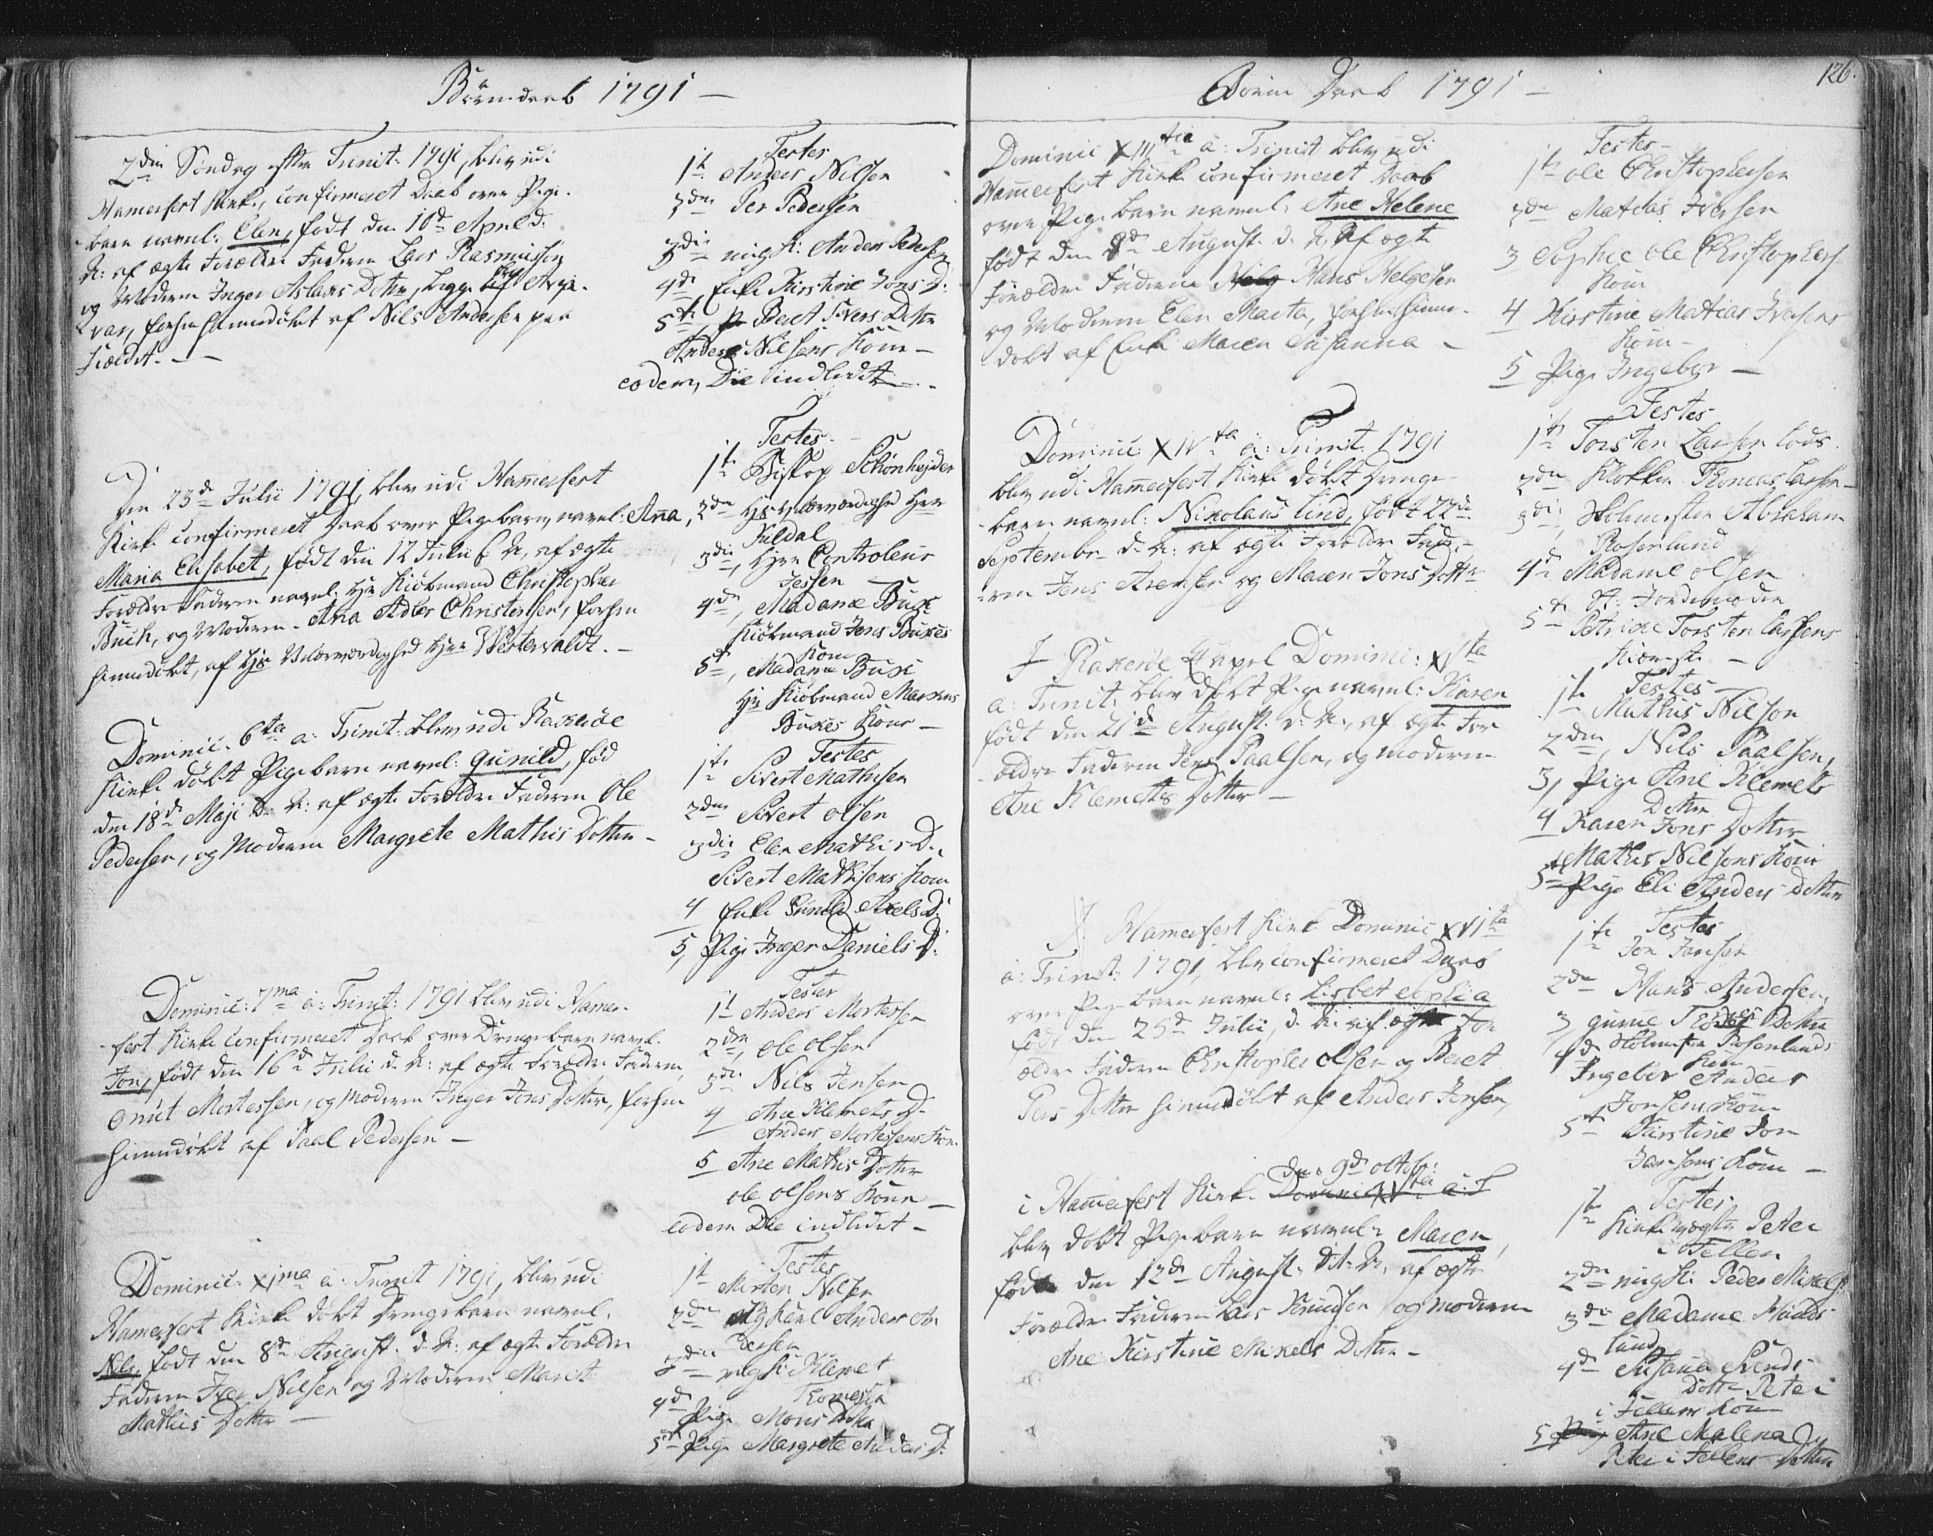 Börnedaab 1791 —
2den Söndag efter Trinit: 1791, blev udi
Hamerfest Kirke, confirmeret Daab over Pige-
barn navnl: Elen, födt den 10de April d:
A: af ægte Forældre Faderen Lars Rasmussen
og Moderen Inger Aslaks Dotter, begge
forhen hiemmedöbt af Nils Andersen paa
Testes
1te Anders Nilsen
2den Per Pedersen
3die ungk: Anders Pedersen
4de Enke Kirstine Jons D:
5te Beret Sivers Dotter
Anders Nilsens Kone —
eodem, Die indledet —
Den 23de Julii 1791, blev udi Hamerfest
Kirke confirmeret Daab over Pigebarn, navnl: Ana,
Maria Elisabet, födt den 12 Julii d: A:, af ægte
Forældre Faderen navnl: Hr Kiöbmand Christopher
Buch, og Moderen - Ana Adler Christensen, forhen
hiemmedöbt, af Hr Velærværdighed Herr Westervaldt. —
Testes —
1te Biskop Schönheyder
2den Hs Velærværdighed Herr
Juldal
3die, Herr Controleur
Jessen
4de, Madame Bux
Kiöbmand Jens Buxes
Kone
5te, Madame Bux
Hr Kiöbmand
Buxes Kone —
Dominic: 6ta a: Trinit: blev udi
Kirke döbt Pigebarn navnl: Gunild, föd
den 18de Maji d: A: af ægte Forældre Faderen Ole
Pedersen, og Moderen Margrete Mathis Dotter —
Testes
1te Sivert Mathisen
2den Sivert Olsen
3die Elen Mathis D:
Sivert Mathisens Kone
4 Enke Gunild Axels D:
5, Pige Inger Daniels D:
Dominic: 7ma a: Trinit: 1791 blev udi Hamer-
fest Kirke confirmeret Daab over Drengebarn navnl:
Jon, födt den 16de Julii d: A: af ægte Forældre Faderen,
Gnut Mortessen, og Moderen Inger Jons Dotter, forhen
hiemmedöbt af Paal Pedersen —
Testes
1te Anders Mortessen
2den, Ole Olsen
3die Nils Jensen
4 Ane Klemets D:
Anders Mortessens Kone
5 Ane Mathis Dotter
Ole Olsens Kone —
eodem Die indledet —
Dominic: XIma a: Trinit 1791, blev udi
Hamerfest Kirke döbt Drengebarn navnl:
Nils, födt den 8de August: d. A: af ægte Forældre
Faderen Iver Nilsen og Moderen Marit
Mathis Dotter —
Testes
1te Morten Nilsen
2den ungkarl Anders An-
dersen
3die ungk: Klemet
Thomesen
4de Pige Maris Dotter
5te Pige Margrete Anders D:
Börne Daab 1791 —
126.
Dominic XIIItia a: Trinit blev udi
Hamerfest Kirke confirmeret Daab
over Pigebarn navnl: Ane Helene
födt den 8de August: d. A: af ægte
Forældre Faderen Hans Helgesen
og Moderen Elen Marta, forhen hiemme-
döbt af Enke Maren Susanna —
Testes —
1te Ole Christophersen
2den Matias Iversen
3 Sophie Ole Christophers:
Kone
4 Kirstine Matias Iversens
Kone —
5 Pige Ingebor —
Dominic XIVta a: Trinit: 1791
blev udi Hamerfest Kirke döbt Drenge-
barn navnl: Nikolaus Lind, födt 22de
Septembr: d. A: af ægte Forældre Fade-
ren Jens Arensen og Maren Jons Dotter
Testes
1te Torsten Larsen Lods
2den Klokker Thomas Larsen
3die, Skolmester Abraham
Rosenlund
4de Madame Olsen
St: Jordemoder
5te Petricke Torsten Larsens
Kiereste —
I Capel Dominic: XVta
a: Trinit: blev döbt Pige navnl: Karen
födt den 21de August: d: A:, af ægte For-
ældre Faderen Jens Paalsen, og Moderen
Ane Klemets Dotter —
Testes —
1te Mathis Nilson
2den, Nils Paalsen,
3, Pige Ane Klemets
Dotter
4 Karen Jons Dotter
Mathis Nilsens Kone
5te Pige Eli Anders Dotter
I Hamerfest Kirke Dominic XVIta
a: Trinit: 1791, blev confirmeret Daab
over Pigebarn navnl: Lisbet
födt den 25de Julii, d. A: af ægte For-
ældre Faderen Christopher Olsen og Beret
Pers Dotter hiemmedöbt af Anders Jensen,
Testes
1te Jon Jansen
2den Hans Andersen,
3 Gurne Dotter
Skolmester Rosenlunds
Kone
4de Ingebor Anders
Jonsens Kone
5te Kirstine Jon
Jansens Kone —
den 9de Octobr:
i Hamerfest Kirke Dominic XVta a: T
blev döbt Pigebarn navnl: Maren,
födt den 12de August: d: A:, af ægte
Forældre Faderen Lars Knudsen og Moderen
Ane Kirstine Mikels Dotter —
Testes
1te Kirkeværge Peter
i Fellen
2den ungk: Peder Mikels:
3die Madame
lund
4de Susana Svends-
Dotter Peter
i Fellens Kone
5 Ane Malena
Peter i Fellens Dotter